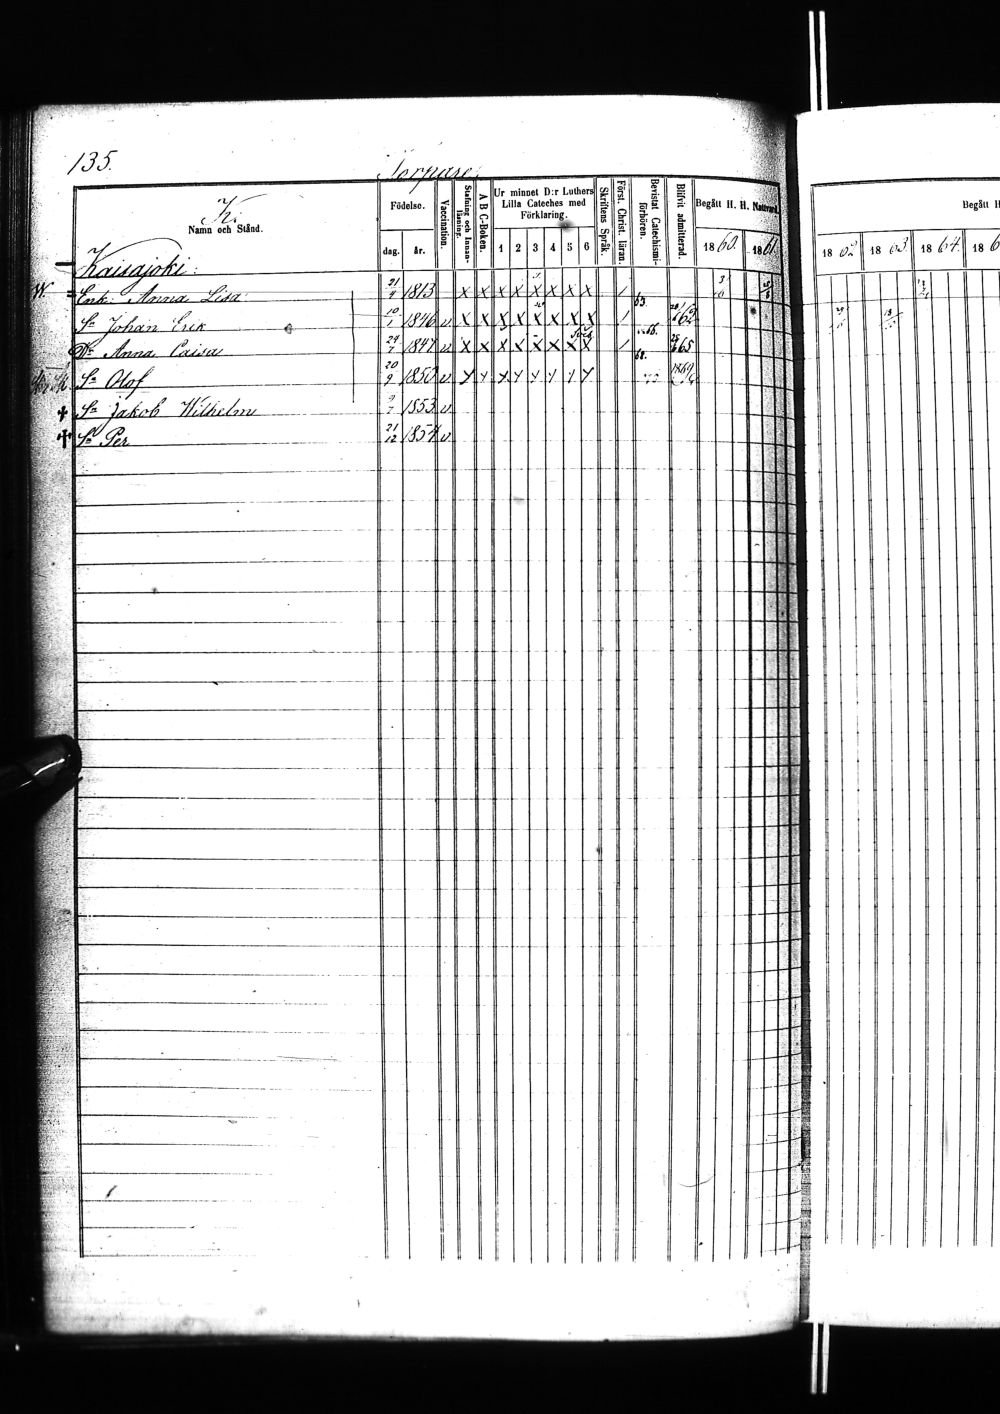 135.
Torpare.
K.
Namn och Stånd.
Födelse.
dag. år.
Vaccination.
Stafning och Innanläsning.
A B C-Boken.
Ur minnet D:r Luthers Lilla Cateches med Förklaring.
1 2 3 4 5 6
Skriftens Språk.
Först. Christ. läran.
Bevistat Catechismiförhören.
Blifvit admitterad.
Begått H. H. Nattvard.
1860. 1861
Begått H
1862 1863 1864 186
Kaisajoki:
Enk. Anna Lisa 21/9 1813 X X X X X X X X 1
Sn Johan Erik 10/1 1846 v X X X X X X X X 1 63. 62
Dr Anna Caisa 29/7 1847 v X X X X X X X X 1 66. 65
Sn Olof 20/9 1850 v 68. 1869
+ Sn Jakob Wilhelm 9/7 1853 v
+ Sn Per 21/12 1854 v